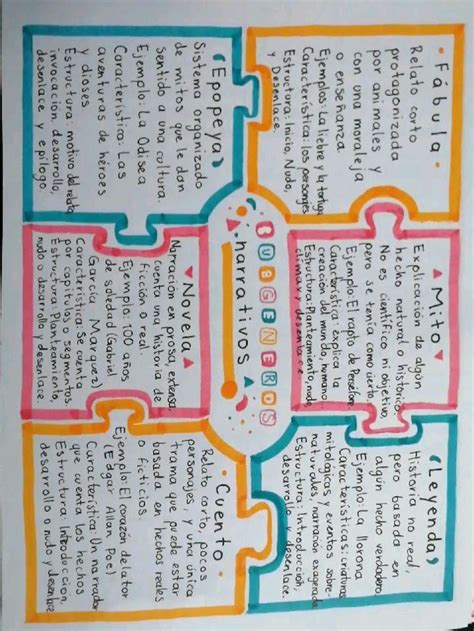 Fábula
Relato corto
protagonizada
por animales y
con una moraleja
o enseñanza
Ejemplos: La liebre y la tortuga
Característica: los personajes
Estructura: Inicio, Nudo,
y Desenlace.
Mito
Explicación de algún
hecho natural o histórico.
No es científico ni objetivo,
pero se tenía como cierto.
Ejemplo: El rapto de Persefone.
Característica: Explica la
creación del mundo, humano.
Estructura: Planteamiento, nudo
climax y desenlace
Leyenda
Historia no real,
pero basada en
algún hecho verdadero.
Ejemplo: La llorona
Características: criaturas
mitológicas y eventos sobre-
naturales, narración exagerada
Estructura: Introducción,
desarrollo y desenlace.
SUBGENEROS
narrativos
Epopeya
Sistema organizado
de mitos que le dan
sentido a una cultura.
Ejemplo: La Odisea
Característica: Las
aventuras de héroes
y dioses
Estructura: motivo del relato,
invocación, desarrollo,
desenlace y epílogo.
Novela
Narración en prosa extensa
cuenta una historia de
ficción o real.
Ejemplo: 100 años
de soledad (Gabriel
García Marquez)
Característica: Se cuenta
por capítulos o segmentos.
Estructura: Planteamiento,
nudo o desarrollo y desenlace.
Cuento
Relato corto, pocos
personajes, y una unica
trama que puede estar
basada en hechos reales
o ficticios.
Ejemplo: El corazón delator
(Edgar Allan Poe)
Característica: Un narrador
que cuenta los hechos
Estructura: Introducción,
desarrollo o nudo y desenlace